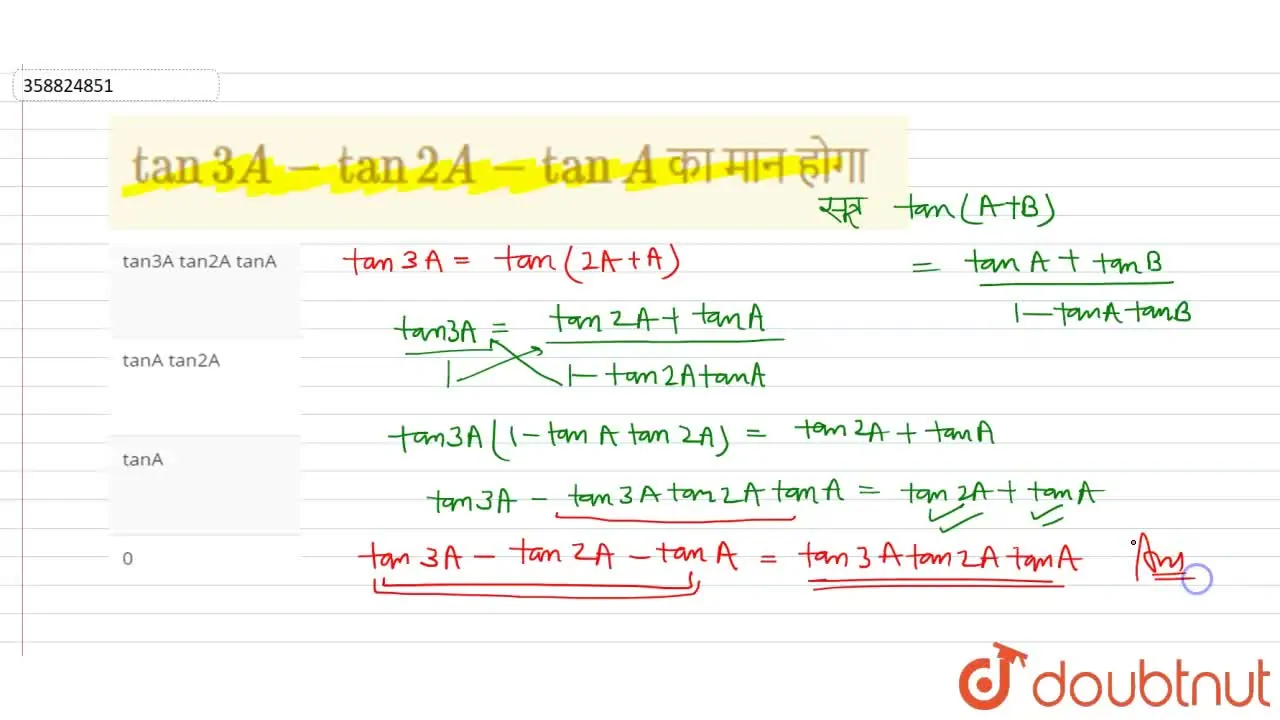 358824851
tan 3A − tan 2A − tan A का मान होगा
सूत्र tan(A+B)
= tan A + tan B
1 − tanA tanB
tan3A tan2A tanA
tanA tan2A
tanA
0
tan 3A = tan (2A+A)
tan3A = tan 2A + tanA
1 1 − tan2A tanA
tan3A (1 − tan A tan 2A) = tan 2A + tanA
tan3A − tan3A tan2A tanA = tan 2A + tanA
tan 3A − tan 2A − tan A = tan 3A tan 2A tanA Ans
doubtnut